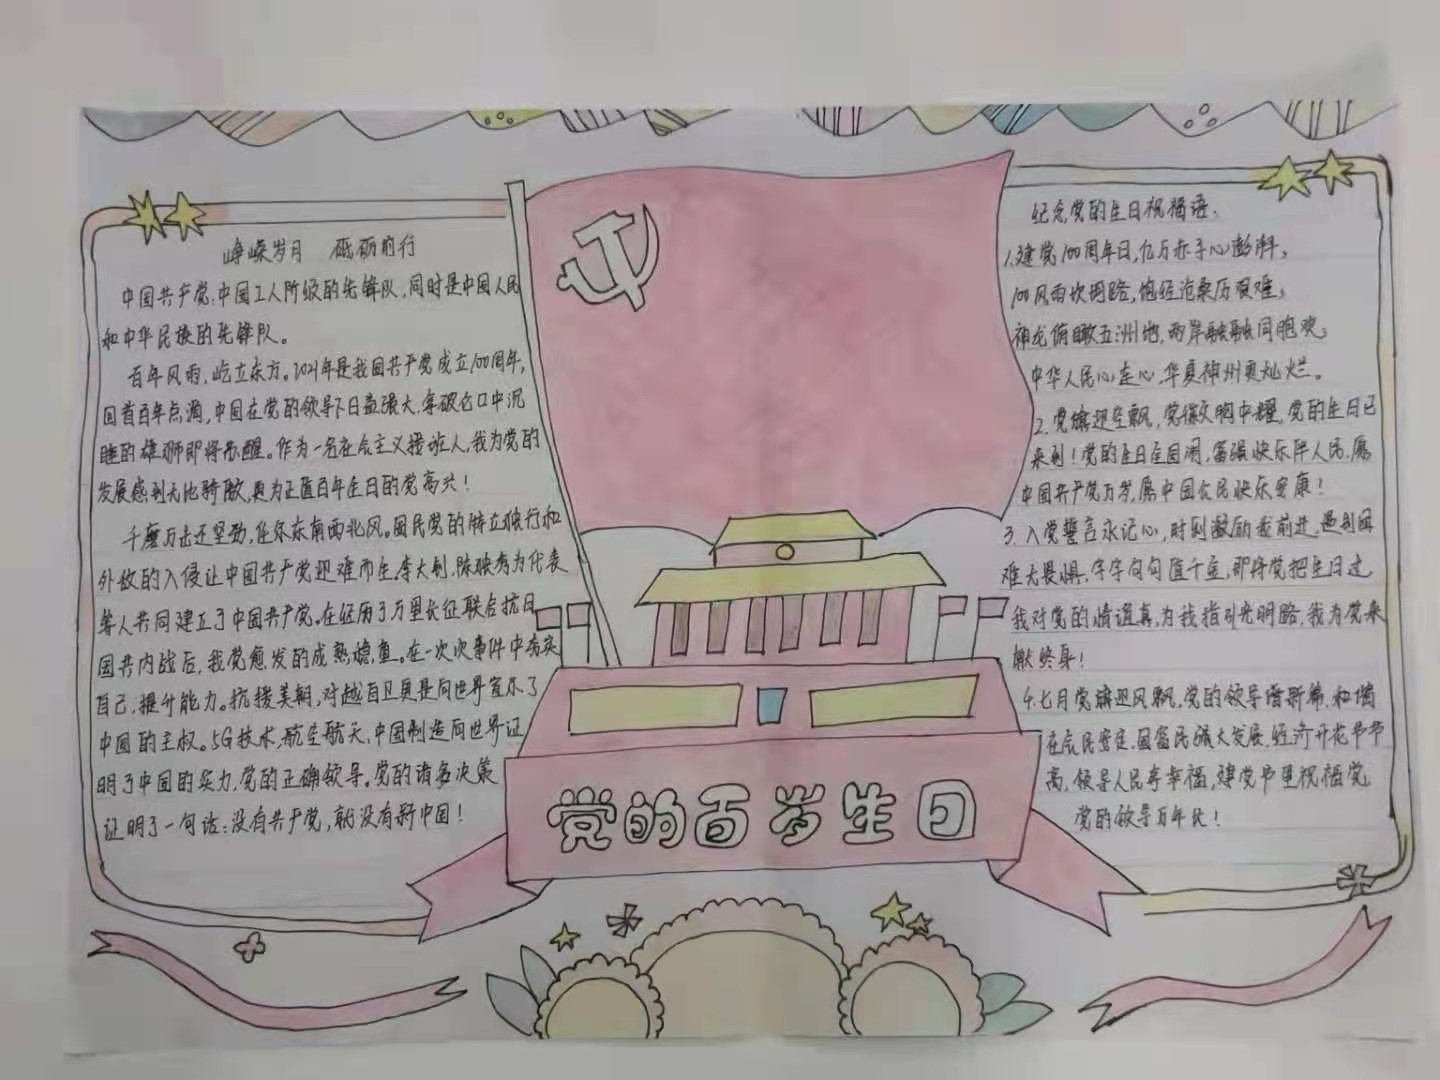 峥嵘岁月 砥砺前行
中国共产党:中国工人阶级的先锋队,同时是中国人民
和中华民族的先锋队。
百年风雨,屹立东方。2021年是我国共产党成立100周年,
回首百年点滴,中国在党的领导下日益强大,拿破仑口中沉
睡的雄狮即将苏醒。作为一名社会主义接班人,我为党的
发展感到无比骄傲,更为正值百年生日的党高兴!
千磨万击还坚劲,任尔东南西北风。国民党的特立独行和
外敌的入侵让中国共产党迎难而生,李大钊,陈独秀为代表
等人共同建立了中国共产党。在经历了万里长征联合抗日
国共内战后,我党愈发的成熟稳重。在一次次事件中夯实
自己,提升能力。抗援美朝,对越自卫具是向世界宣示了
中国的主权。5G技术,航空航天,中国制造向世界证
明了中国的实力,党的正确领导。党的诸多决策
证明了一句话:没有共产党,就没有新中国!
党的百岁生日
纪念党的生日祝福语:
1.建党100周年日,亿万赤子心澎湃,
100风雨坎坷路,饱经沧桑历艰难,
神龙俯瞰五洲地,两岸融融同胞欢。
中华人民心连心,华夏神州更灿烂。
2.党旗迎空飘,党徽久胸中耀,党的生日已
来到!党的生日全国闹,富强快乐伴人民,愿
中国共产党万岁,愿中国人民快乐安康!
3.入党誓言永记心,时刻激励我前进。遇到困
难大畏惧,字字句句值千金,即将党把生日过
我对党的情谊真,为我指引光明路,我为党来
献终身!
4.七月党旗迎风飘,党的领导谱新篇,和谐
社会民安定,国富民强大发展,经济开花节节
高,领导人民享幸福,建党节里祝福党
党的领导万年长!